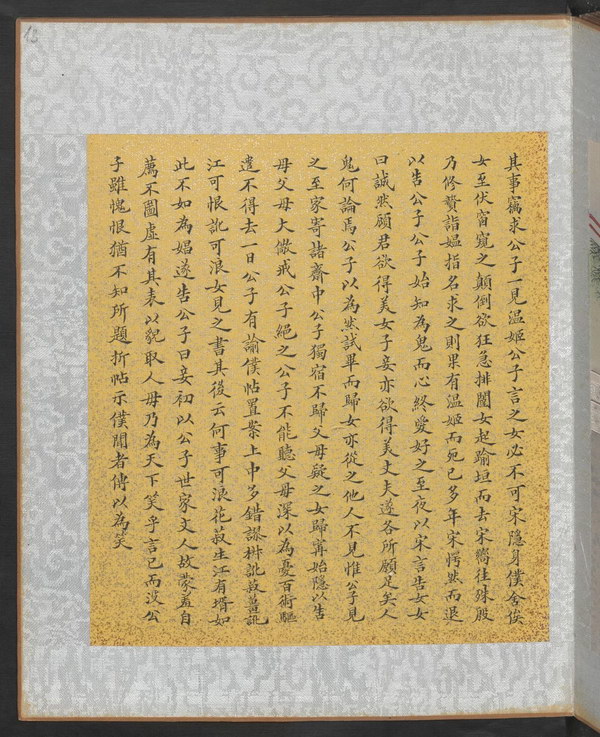 其事竊求公子一見温姬公子言之女必不可宋隱身僕舍俟
女至伏窗窺之顛倒欲狂急排闥女起踰垣而去宋嚮往殊殷
乃修贄詣媼指名求之則果有温姬而死已多年宋愕然而退
以告公子公子始知為鬼而心終愛好之至夜以宋言告女女
曰誠然顧君欲得美女子妾亦欲得美丈夫遂各所願足矣人
鬼何論焉公子以為然試畢而歸女亦從之他人不見惟公子見
之至家寄諸齋中公子獨宿不歸父母疑之女歸寗始隱以告
母父母大儆戒公子絕之公子不能聽父母深以為憂百術驅
遣不得去一日公子有諭僕帖置案上中多錯謬椒訛菽薑訛
江可恨訛可浪女見之書其後云何事可浪花菽生江有壻如
此不如為娼遂告公子曰妾初以公子世家文人故蒙羞自
薦不圖虛有其表以貌取人毋乃為天下笑乎言已而沒公
子雖愧恨猶不知所題折帖示僕聞者傳以為笑